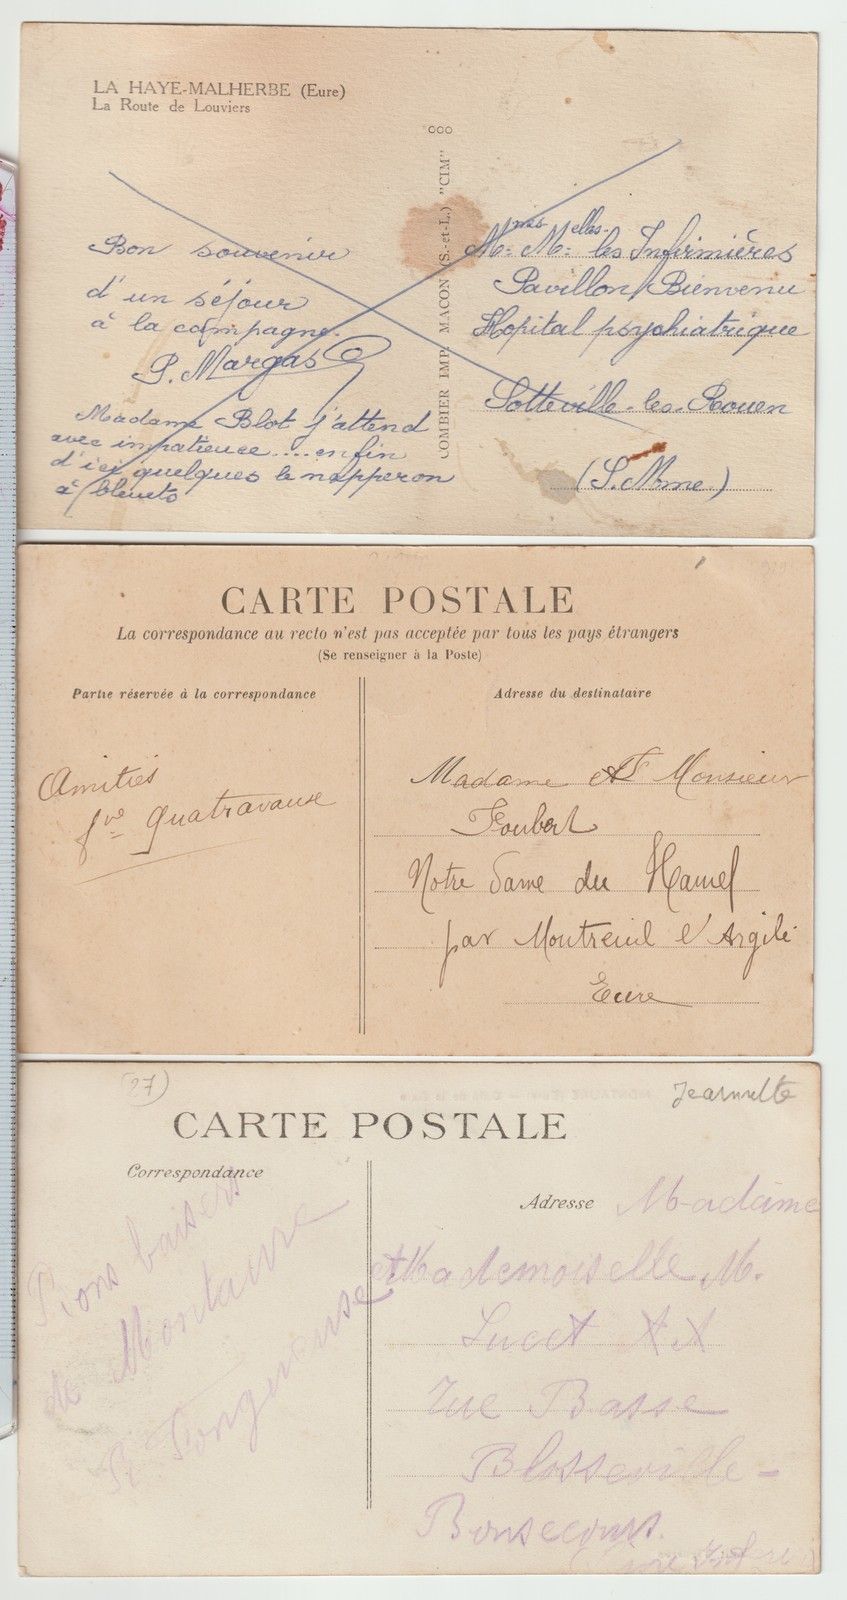 LA HAYE-MALHERBE (Eure)
La Route de Louviers
ooo
Bon souvenir
d'un séjour
à la campagne.
P. Margas
Madame Blot j'attend
avec impatience .... enfin
d'ici quelques le napperon
à bleuets
COMBIER IMP. MACON (S.-et-L.) "CIM"
Mmes Melles les Infirmières
Pavillon Bienvenu
Hopital psychiatrique
Sotteville-les-Rouen
(S. Mme)
CARTE POSTALE
La correspondance au recto n'est pas acceptée par tous les pays étrangers
(Se renseigner à la Poste)
Partie réservée à la correspondance
Adresse du destinataire
Amitiés
Vve Quatravaux
Madame et Monsieur
Foubert
Notre Dame du Hamel
par Montreuil l'Argilé
Eure
(27)
Jeannette
CARTE POSTALE
Correspondance
Bons baisers
de Montaure
Adresse Madame
et Mademoiselle M.
Lucet XX
rue Basse
Blosseville-
Bonsecours.